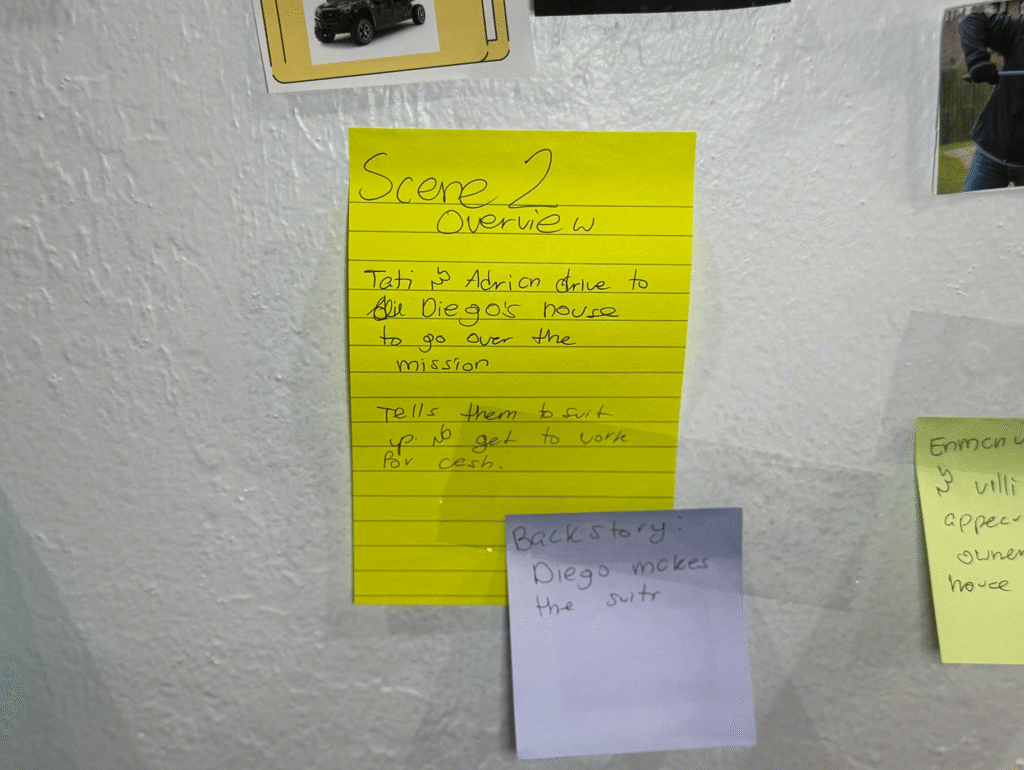 Scene 2
Overview
Tati & Adrian drive to
Diego's house
to go over the
mission
Tells them to suit
up. & get to work
for cash.
Backstory:
Diego makes
the suits
& villi
appear
owner
house